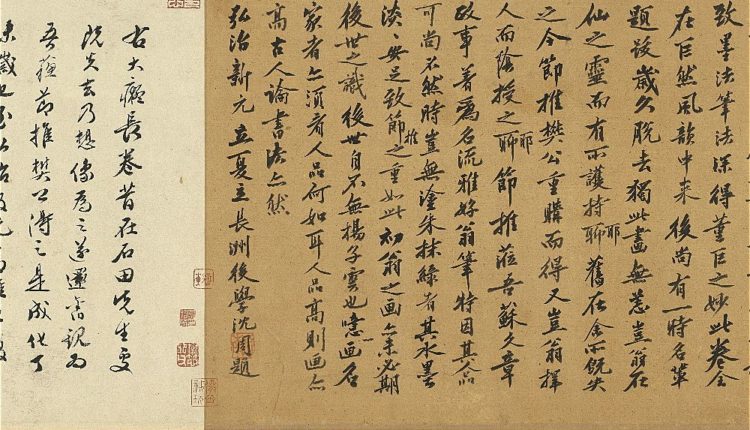 致墨法筆法深得董巨之妙此卷全
在巨然風韻中來後尚有一時名輩
題跋歲久脫去獨此畫無恙豈翁在
仙之靈而有所護持聊耶舊在余所既失
之今節推樊公重購而得又豈翁擇
人而陰授之聊耶節推蒞吾蘇文章
政事著為名流雅好翁筆特因其人品
可尚不然時豈無塗朱抹綠者其水墨
淡淡安足致節推之重如此初翁之画亦未必期
後世之識後世自不無揚子雲也噫以画名
家者亦須看人品何如耳人品高則画亦
高古人論書法亦然
弘治新元立夏立長洲後學沈周題
右大癡長卷昔在石田先生處
既失去乃想像為之遂還舊觀為
吾蘇節推樊公得之是成化丁
未歲也至弘治改元